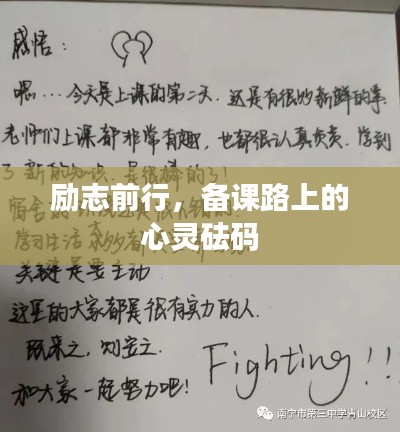 感悟：
嗯…今天是上课的第二天.还是有很多新鲜的事.
老师们上课都非常有趣,也都很认真负责.学到
了新的知识.是很棒的了!
励志前行，备课路上的
心灵砝码
学习生活
关键是要主动
这里的大家都是很有实力的人.
既来之,则安之.
和大家一起努力吧!
Fighting!!
南宁市第三中学青山校区